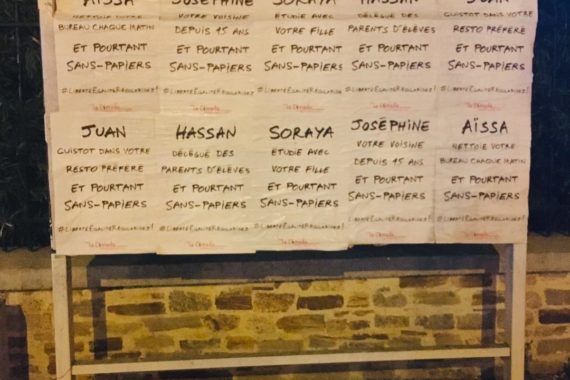 AÏSSA
NETTOIE VOTRE
BUREAU CHAQUE MATIN
ET POURTANT
SANS-PAPIERS
#LIBERTÉEGALITÉRÉGULARISEZ!
JOSÉPHINE
VOTRE VOISINE
DEPUIS 15 ANS
ET POURTANT
SANS-PAPIERS
#LIBERTÉEGALITÉRÉGULARISEZ!
SORAYA
ÉTUDIE AVEC
VOTRE FILLE
ET POURTANT
SANS-PAPIERS
#LIBERTÉEGALITÉRÉGULARISEZ!
HASSAN
DÉLÉGUÉ DES
PARENTS D'ÉLÈVES
ET POURTANT
SANS-PAPIERS
#LIBERTÉEGALITÉRÉGULARISEZ!
JUAN
CUISTOT DANS VOTRE
RESTO PRÉFÉRÉ
ET POURTANT
SANS-PAPIERS
#LIBERTÉEGALITÉRÉGULARISEZ!
JUAN
CUISTOT DANS VOTRE
RESTO PRÉFÉRÉ
ET POURTANT
SANS-PAPIERS
#LIBERTÉEGALITÉRÉGULARISEZ!
HASSAN
DÉLÉGUÉ DES
PARENTS D'ÉLÈVES
ET POURTANT
SANS-PAPIERS
#LIBERTÉEGALITÉRÉGULARISEZ!
SORAYA
ÉTUDIE AVEC
VOTRE FILLE
ET POURTANT
SANS-PAPIERS
#LIBERTÉEGALITÉRÉGULARISEZ!
JOSÉPHINE
VOTRE VOISINE
DEPUIS 15 ANS
ET POURTANT
SANS-PAPIERS
#LIBERTÉEGALITÉRÉGULARISEZ!
AÏSSA
NETTOIE VOTRE
BUREAU CHAQUE MATIN
ET POURTANT
SANS-PAPIERS
#LIBERTÉEGALITÉRÉGULARISEZ!